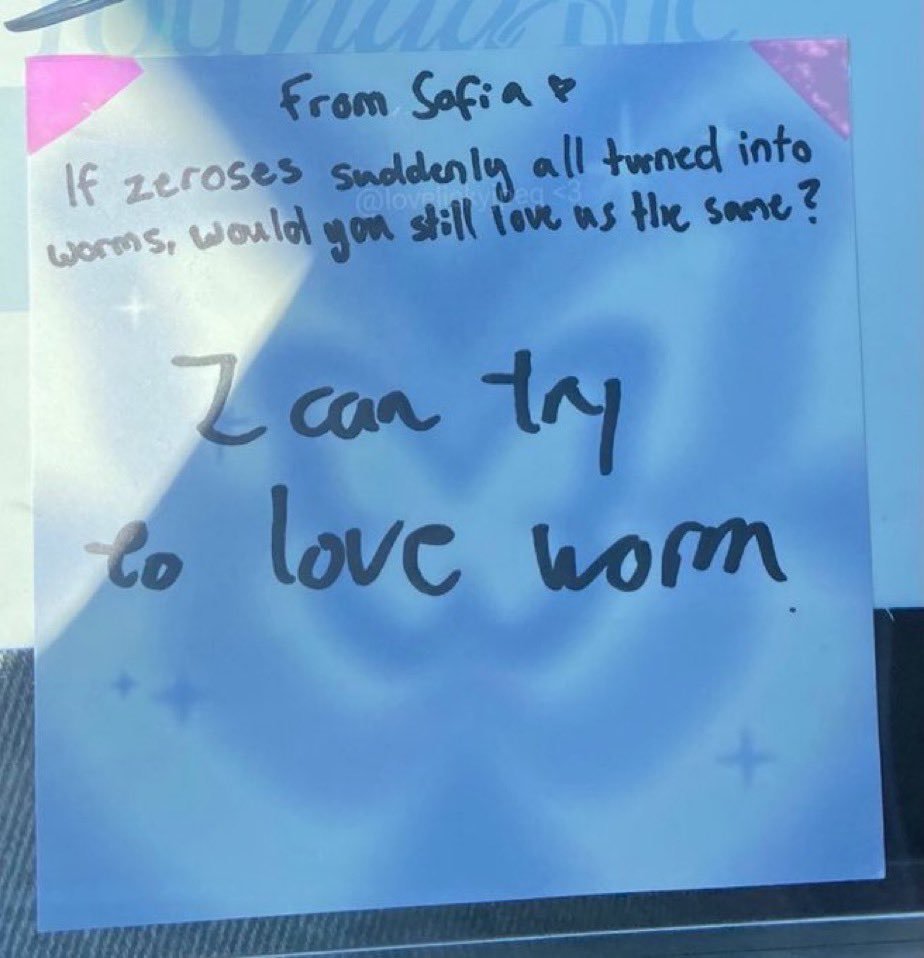 From Sofia
If zeroses suddenly all turned into
worms, would you still love us the same?
I can try
to love worm.